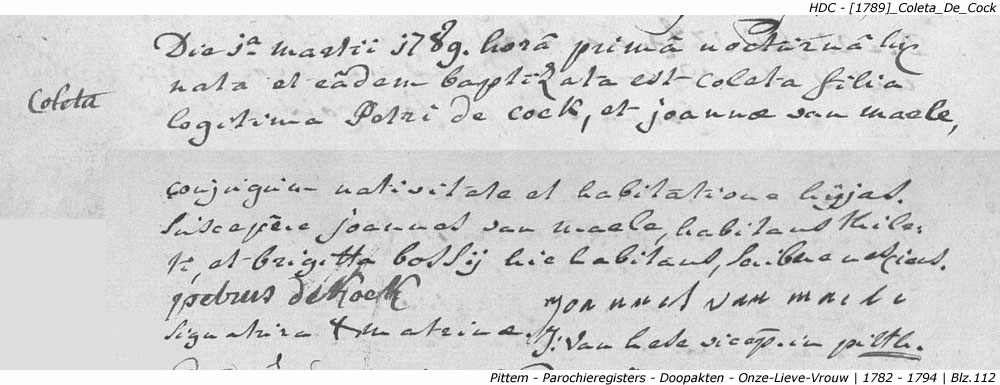 HDC - [1789]_Coleta_De_Cock
Die 1ª martii 1789. horâ primâ nocturnâ hic
nata et eâdem baptizata est coleta filia
Coleta
legitima Petri de cock, et joannæ van maele,
conjugum nativitate et habitatione hujas.
suscepêre joannes van maele, habitans Thile-
ti, et brigitta bossij hic habitans, scribere nesciens.
petrus de kock joannes van maele
signatura + matrinæ. J: van hese vicep: in pitth.
Pittem - Parochieregisters - Doopakten - Onze-Lieve-Vrouw | 1782 - 1794 | Blz.112